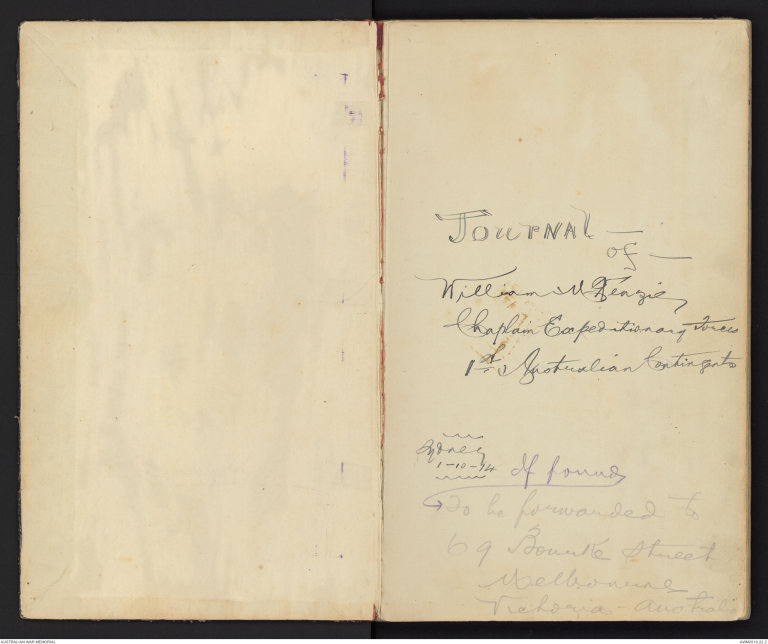 Journal —
of —
William McKenzie
Chaplain Expeditionary Forces
1st Australian Contingents
Sydney
1-10-14
If found
To be forwarded to
69 Bourke Street
Melbourne
Victoria - Australia
AUSTRALIAN WAR MEMORIAL